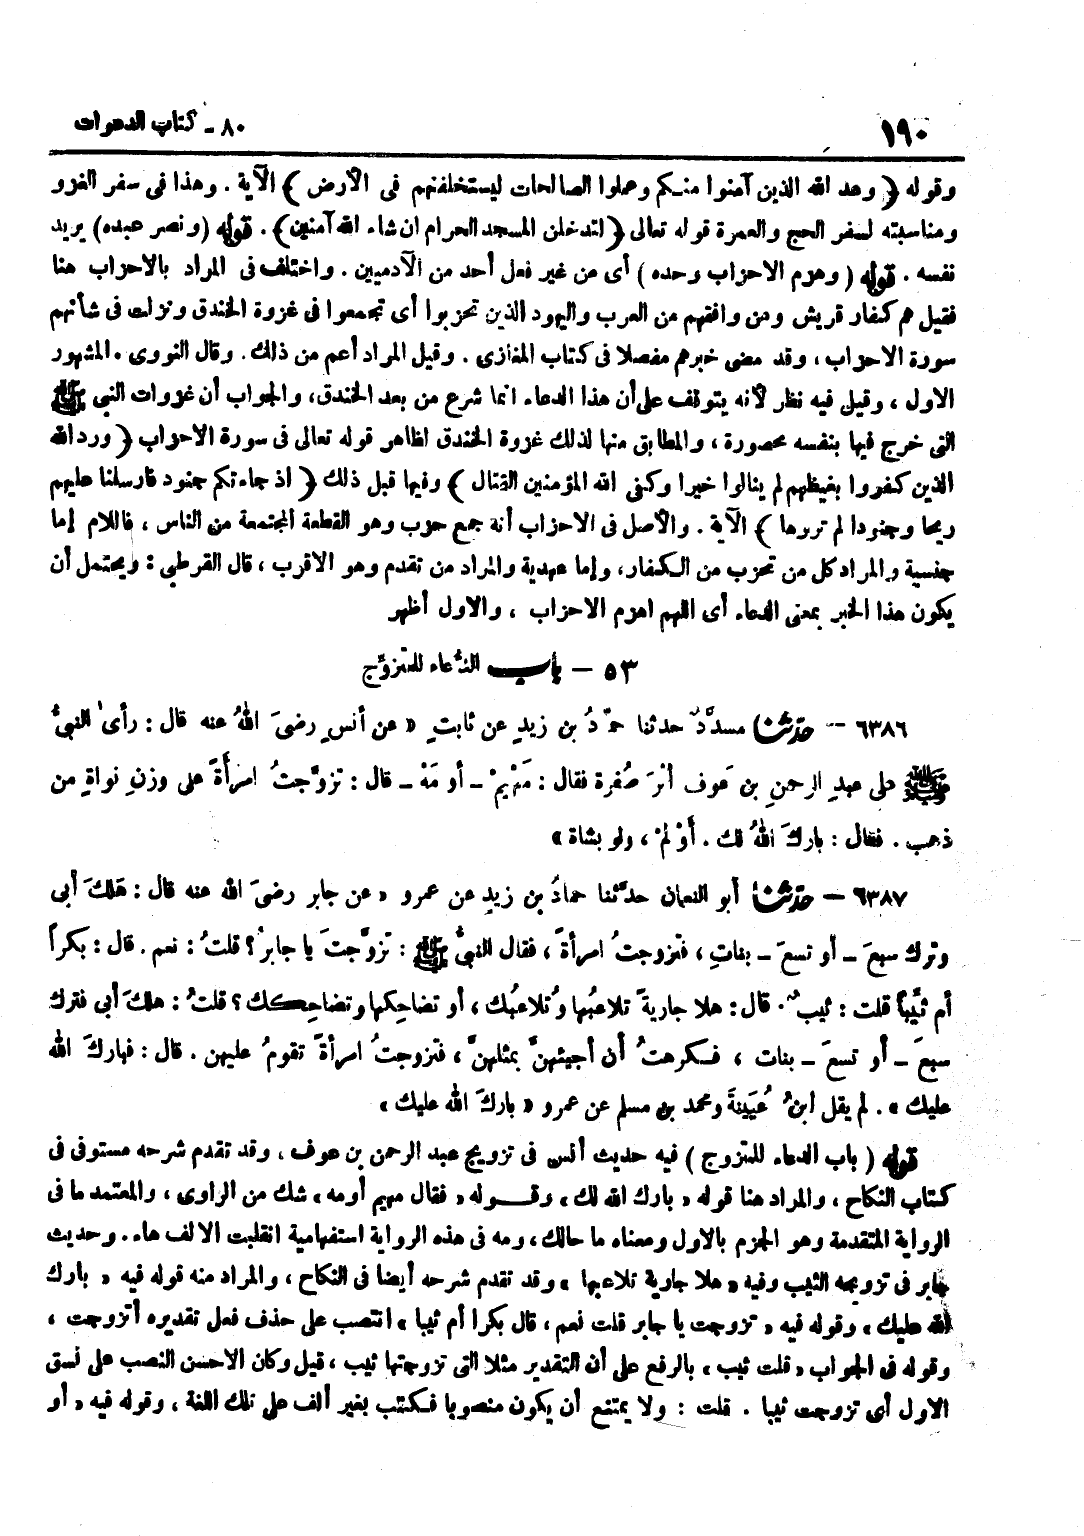 ١٩٠
٨٠ - كتاب الدعوات
وقوله ﴿ وعد الله الذين آمنوا منكم وعملوا الصالحات ليستخلفنهم فى الأرض ﴾ الآية . وهذا فى سفر الغزو
ومناسبته لسفر الحج والعمرة قوله تعالى ﴿ لتدخلن المسجد الحرام ان شاء الله آمنين ﴾ . قوله ( ونصر عبده ) يريد
نفسه . قوله ( وهزم الاحزاب وحده ) أى من غير فعل أحد من الآدميين . واختلف فى المراد بالاحزاب هنا
فقيل هم كفار قريش ومن وافقهم من العرب واليهود الذين تحزبوا أى تجمعوا فى غزوة الخندق ونزلت فى شأنهم
سورة الاحزاب ، وقد مضى خبرهم مفصلا فى كتاب المغازى . وقيل المراد أعم من ذلك . وقال النووى . المشهور
الاول ، وقيل فيه نظر لأنه يتوقف على أن هذا الدعاء انما شرع من بعد الخندق، والجواب أن غزوات النبى ﷺ
التى خرج فيها بنفسه محصورة ، والمطابق منها لذلك غزوة الخندق لظاهر قوله تعالى فى سورة الاحزاب ﴿ ورد الله
الذين كفروا بغيظهم لم ينالوا خيرا وكفى الله المؤمنين القتال ﴾ وفيها قبل ذلك ﴿ اذ جاءتكم جنود فأرسلنا عليهم
ريحا وجنودا لم تروها ﴾ الآية . والأصل فى الاحزاب أنه جمع حزب وهو القطعة المجتمعة من الناس ، فاللام إما
جنسية والمراد كل من تحزب من الكفار، وإما عهدية والمراد من تقدم وهو الاقرب ، قال القرطبى : ويحتمل أن
يكون هذا الخبر بمعنى الدعاء أى اللهم اهزم الاحزاب ، والاول أظهر
٥٣ - باب الدُّعاء للمتزوِّج
٦٣٨٦ - حدّثنا مسدَّدٌ حدثنا حمّادُ بن زيدٍ عن ثابتٍ « عن أنسٍ رضىَ اللهُ عنه قال : رأى النبىُّ
ﷺ على عبدِ الرحمنِ بن عَوف أثرَ صُفرة فقال : مَهْيمْ - أو مَهْ - قال : تزوَّجتُ امرأةً على وزنِ نواةٍ من
ذهب . فقال : باركَ اللهُ لك . أَوْلمْ ، ولو بشاة »
٦٣٨٧ - حدّثنا أبو النعمان حدَّثنا حمادُ بن زيدٍ عن عمرو « عن جابر رضىَ الله عنه قال : هَلكَ أبى
وترك سبعَ - أو تسعَ - بناتٍ ، فتزوجتُ امرأةً ، فقال النبىُّ ﷺ : تزوَّجتَ يا جابرُ ؟ قلتُ : نعم . قال : بكراً
أم ثيِّباً قلت : ثيبٌ . قال : هلا جاريةً تلاعبُها وتُلاعبُك ، أو تضاحِكها وتضاحِكك ؟ قلتُ : هلكَ أبى فترك
سبعَ - أو تسعَ - بنات ، فكرهتُ أن أجيئهنَّ بمثلهنَّ ، فتزوجتُ امرأةً تقومُ عليهن . قال : فباركَ الله
عليك » . لم يقل ابنُ عُيَينةَ ومحمد بن مسلم عن عمرو « باركَ الله عليك »
قوله ( باب الدعاء للمتزوج ) فيه حديث أنس فى تزويج عبد الرحمن بن عوف ، وقد تقدم شرحه مستوفى فى
كتاب النكاح ، والمراد هنا قوله « بارك الله لك » وقوله « فقال مهيم أو مه » شك من الراوى ، والمعتمد ما فى
الرواية المتقدمة وهو الجزم بالاول ومعناه ما حالك ، ومه فى هذه الرواية استفهامية انقلبت الالف هاء . وحديث
جابر فى تزويجه الثيب وفيه « هلا جارية تلاعبها » وقد تقدم شرحه أيضا فى النكاح ، والمراد منه قوله فيه « بارك
الله عليك » وقوله فيه « تزوجت يا جابر قلت نعم ، قال بكرا أم ثيبا » انتصب على حذف فعل تقديره أتزوجت ،
وقوله فى الجواب « قلت ثيب » بالرفع على أن التقدير مثلا التى تزوجتها ثيب ، قيل وكان الاحسن النصب على نسق
الاول أى تزوجت ثيبا . قلت : ولا يمتنع أن يكون منصوبا فكتب بغير ألف على تلك اللغة ، وقوله فيه « أو